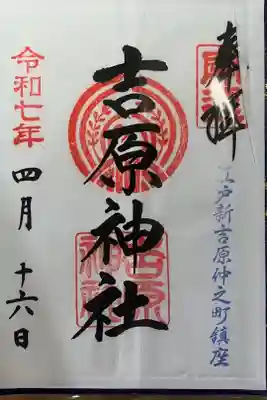 奉拝
江戸新吉原仲之町鎮座
吉原神社
吉原
神社
令和七年 四月 十六日